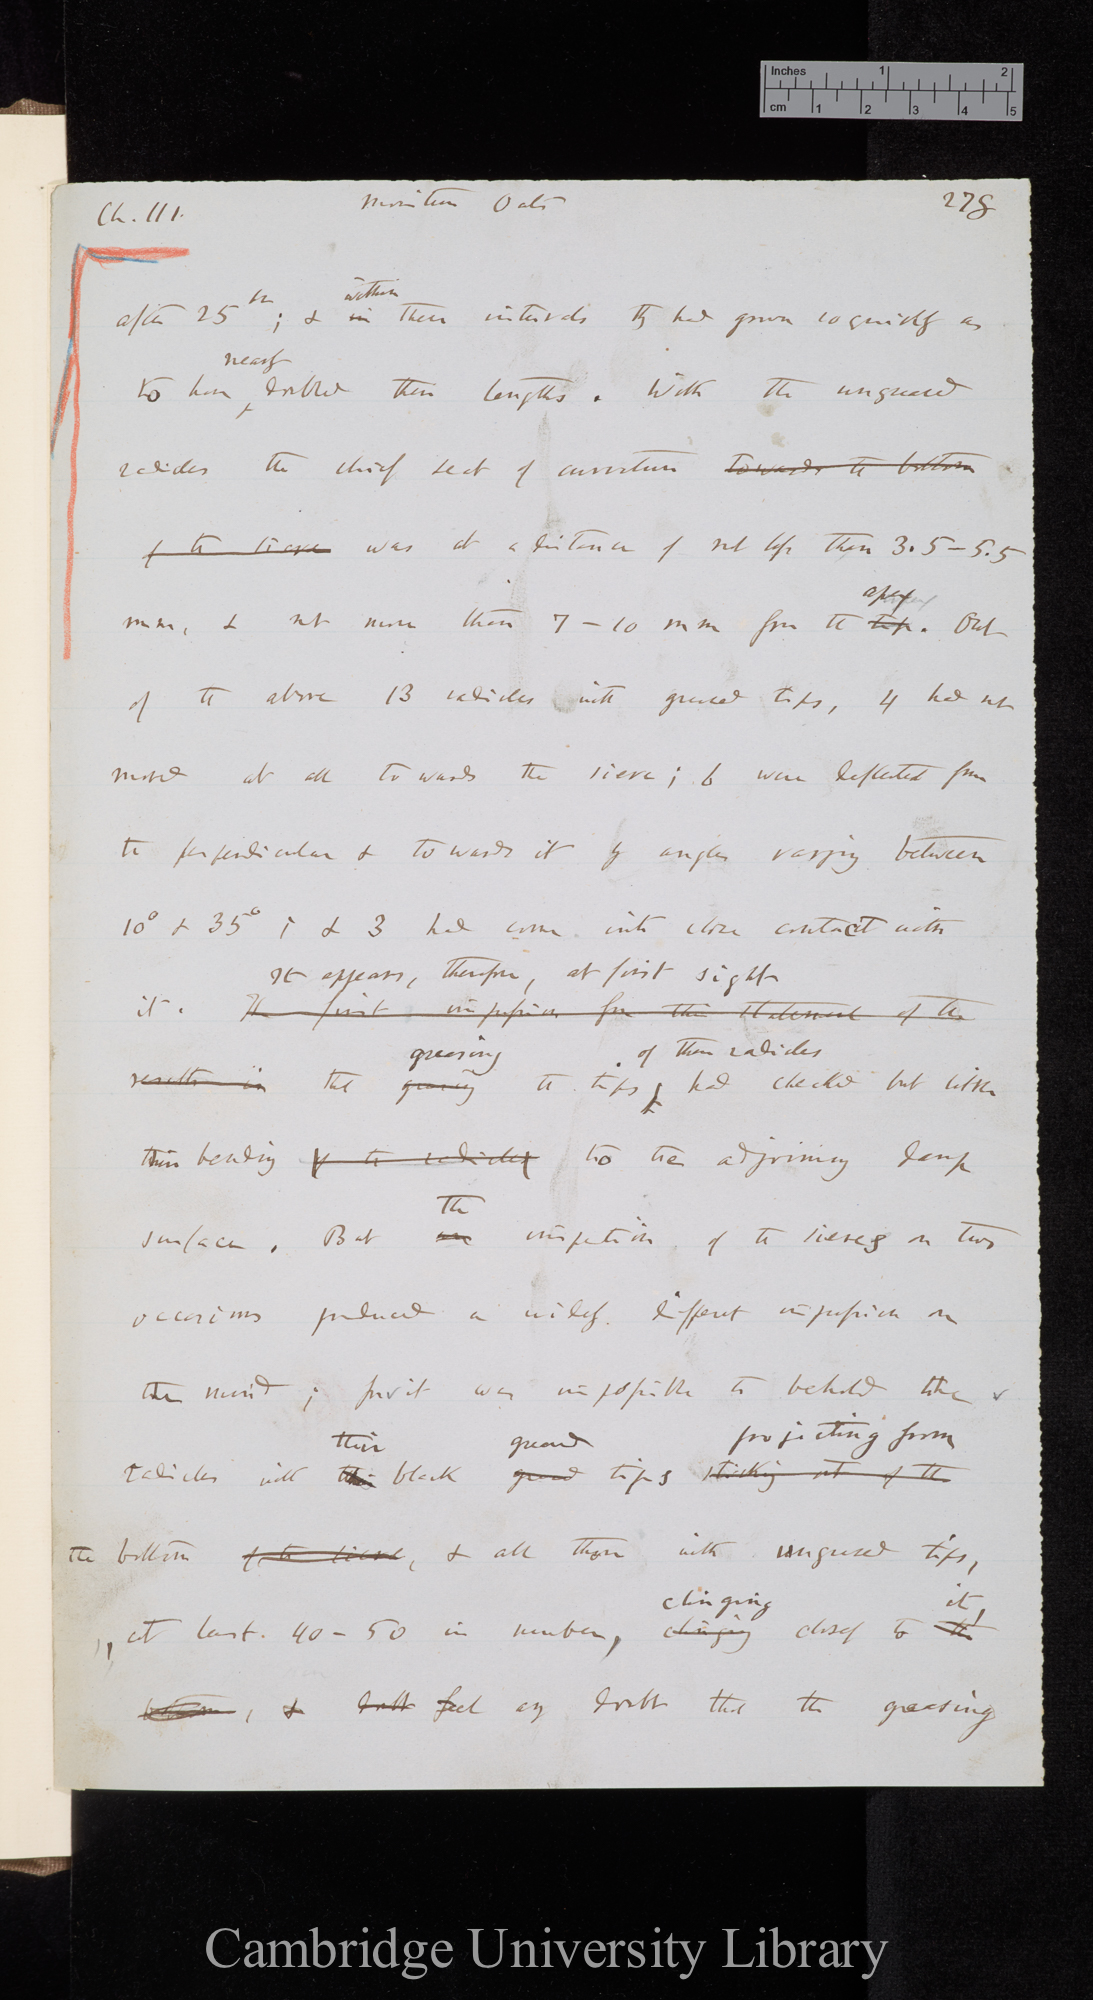 Inches 1 2
cm 1 2 3 4 5
Ch. III. Moisture Oats 278
within
after 25 h; & in these intervals they had grown so quickly as
nearly
to have doubled their lengths. With the ungreased
radicles the chief seat of curvature towards the bottom
of the sieve was at a distance of not less than 3.5 – 5.5
apex
mm, & not more than 7 – 10 mm from the tip. Out
of the above 13 radicles with greased tips, 4 had not
moved at all towards the sieve; 6 were deflected from
the perpendicular & towards it by angles varying between
10° & 35°; & 3 had come into close contact with
It appears, therefore, at first sight
it. The first impression from the statement of the
greasing of these radicles
results is that greasing the tips had checked but little
their bending of the radicles to the adjoining damp
the
surface. But an inspection of the sieves on two
occasions produced a widely different impression on
the mind; for it was impossible to behold the
their greased projecting from
radicles with the black greased tips sticking out of the
the bottom of the sieve, & all those with ungreased tips,
clinging it,
at least 40 – 50 in number, clinging closely to the
bottom, & doubt feel any doubt that the greasing
Cambridge University Library